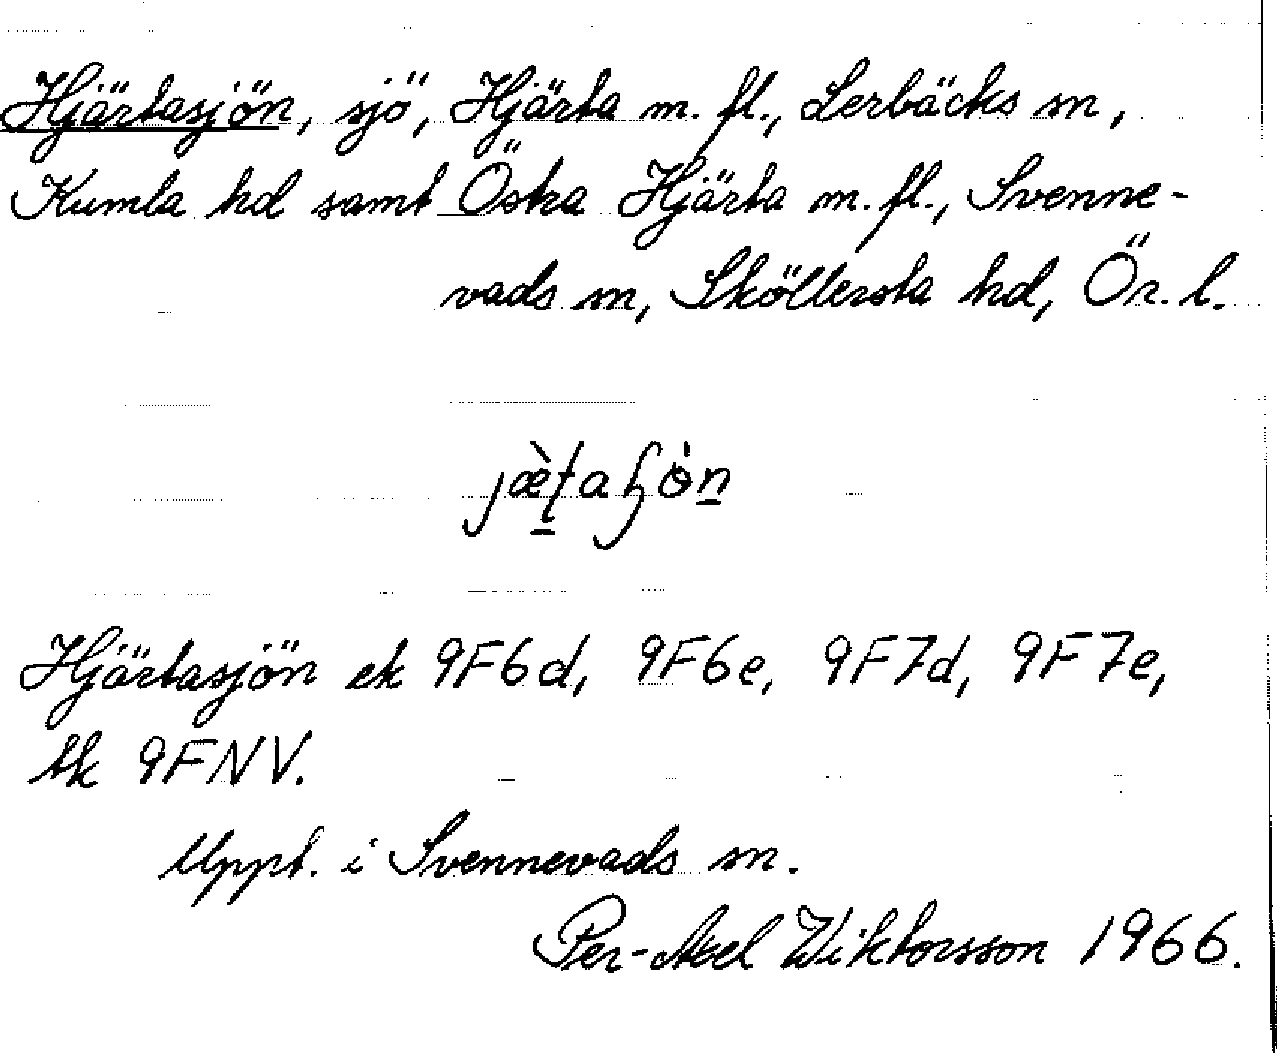 Hjärtasjön, sjö, Hjärta m. fl., Lerbäcks sn,
Kumla hd samt Östra Hjärta m. fl., Svenne-
vads sn, Sköllersta hd, Ör. l.
Hjärtasjön ek 9F6d, 9F6e, 9F7d, 9F7e,
tk 9FNV.
Uppt. i Svennevads sn.
Per-Axel Wiktorsson 1966.